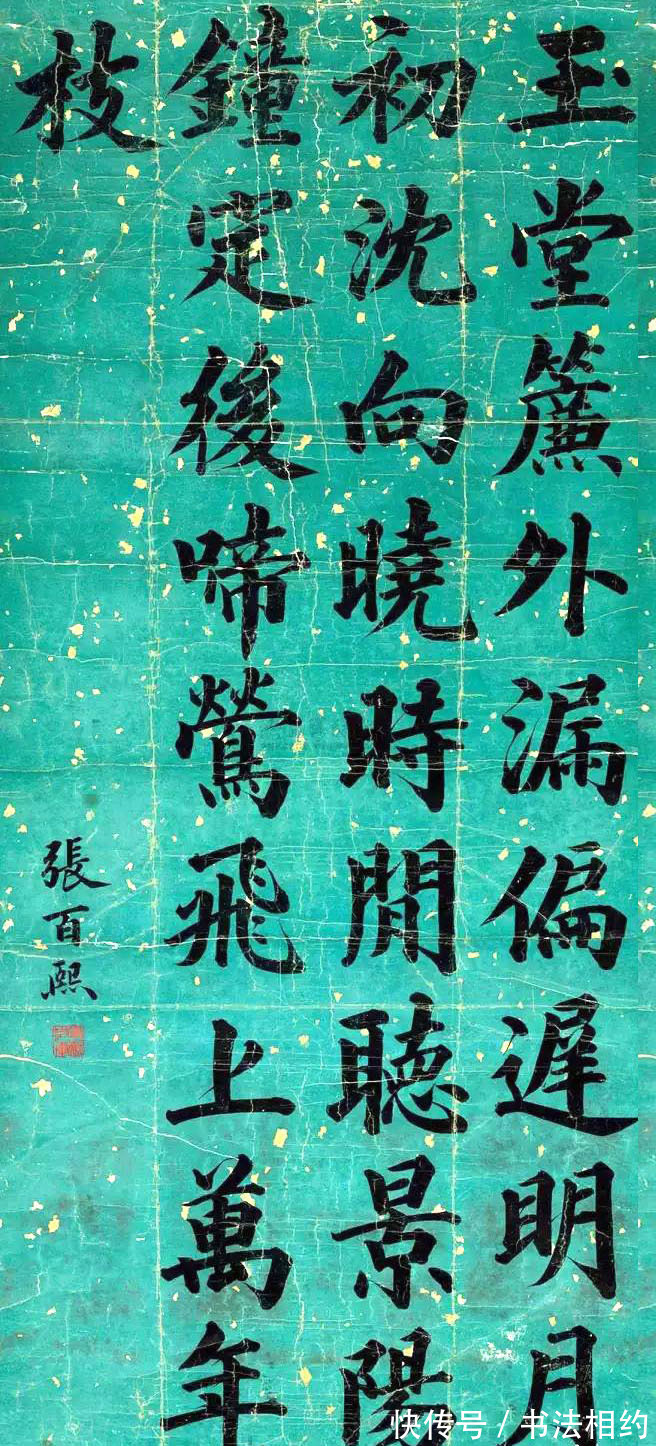 玉堂簾外漏偏遲明月
初沈向曉時閒聽景陽
鐘定後啼鶯飛上萬年
枝
張百熙
快传号 / 书法相约